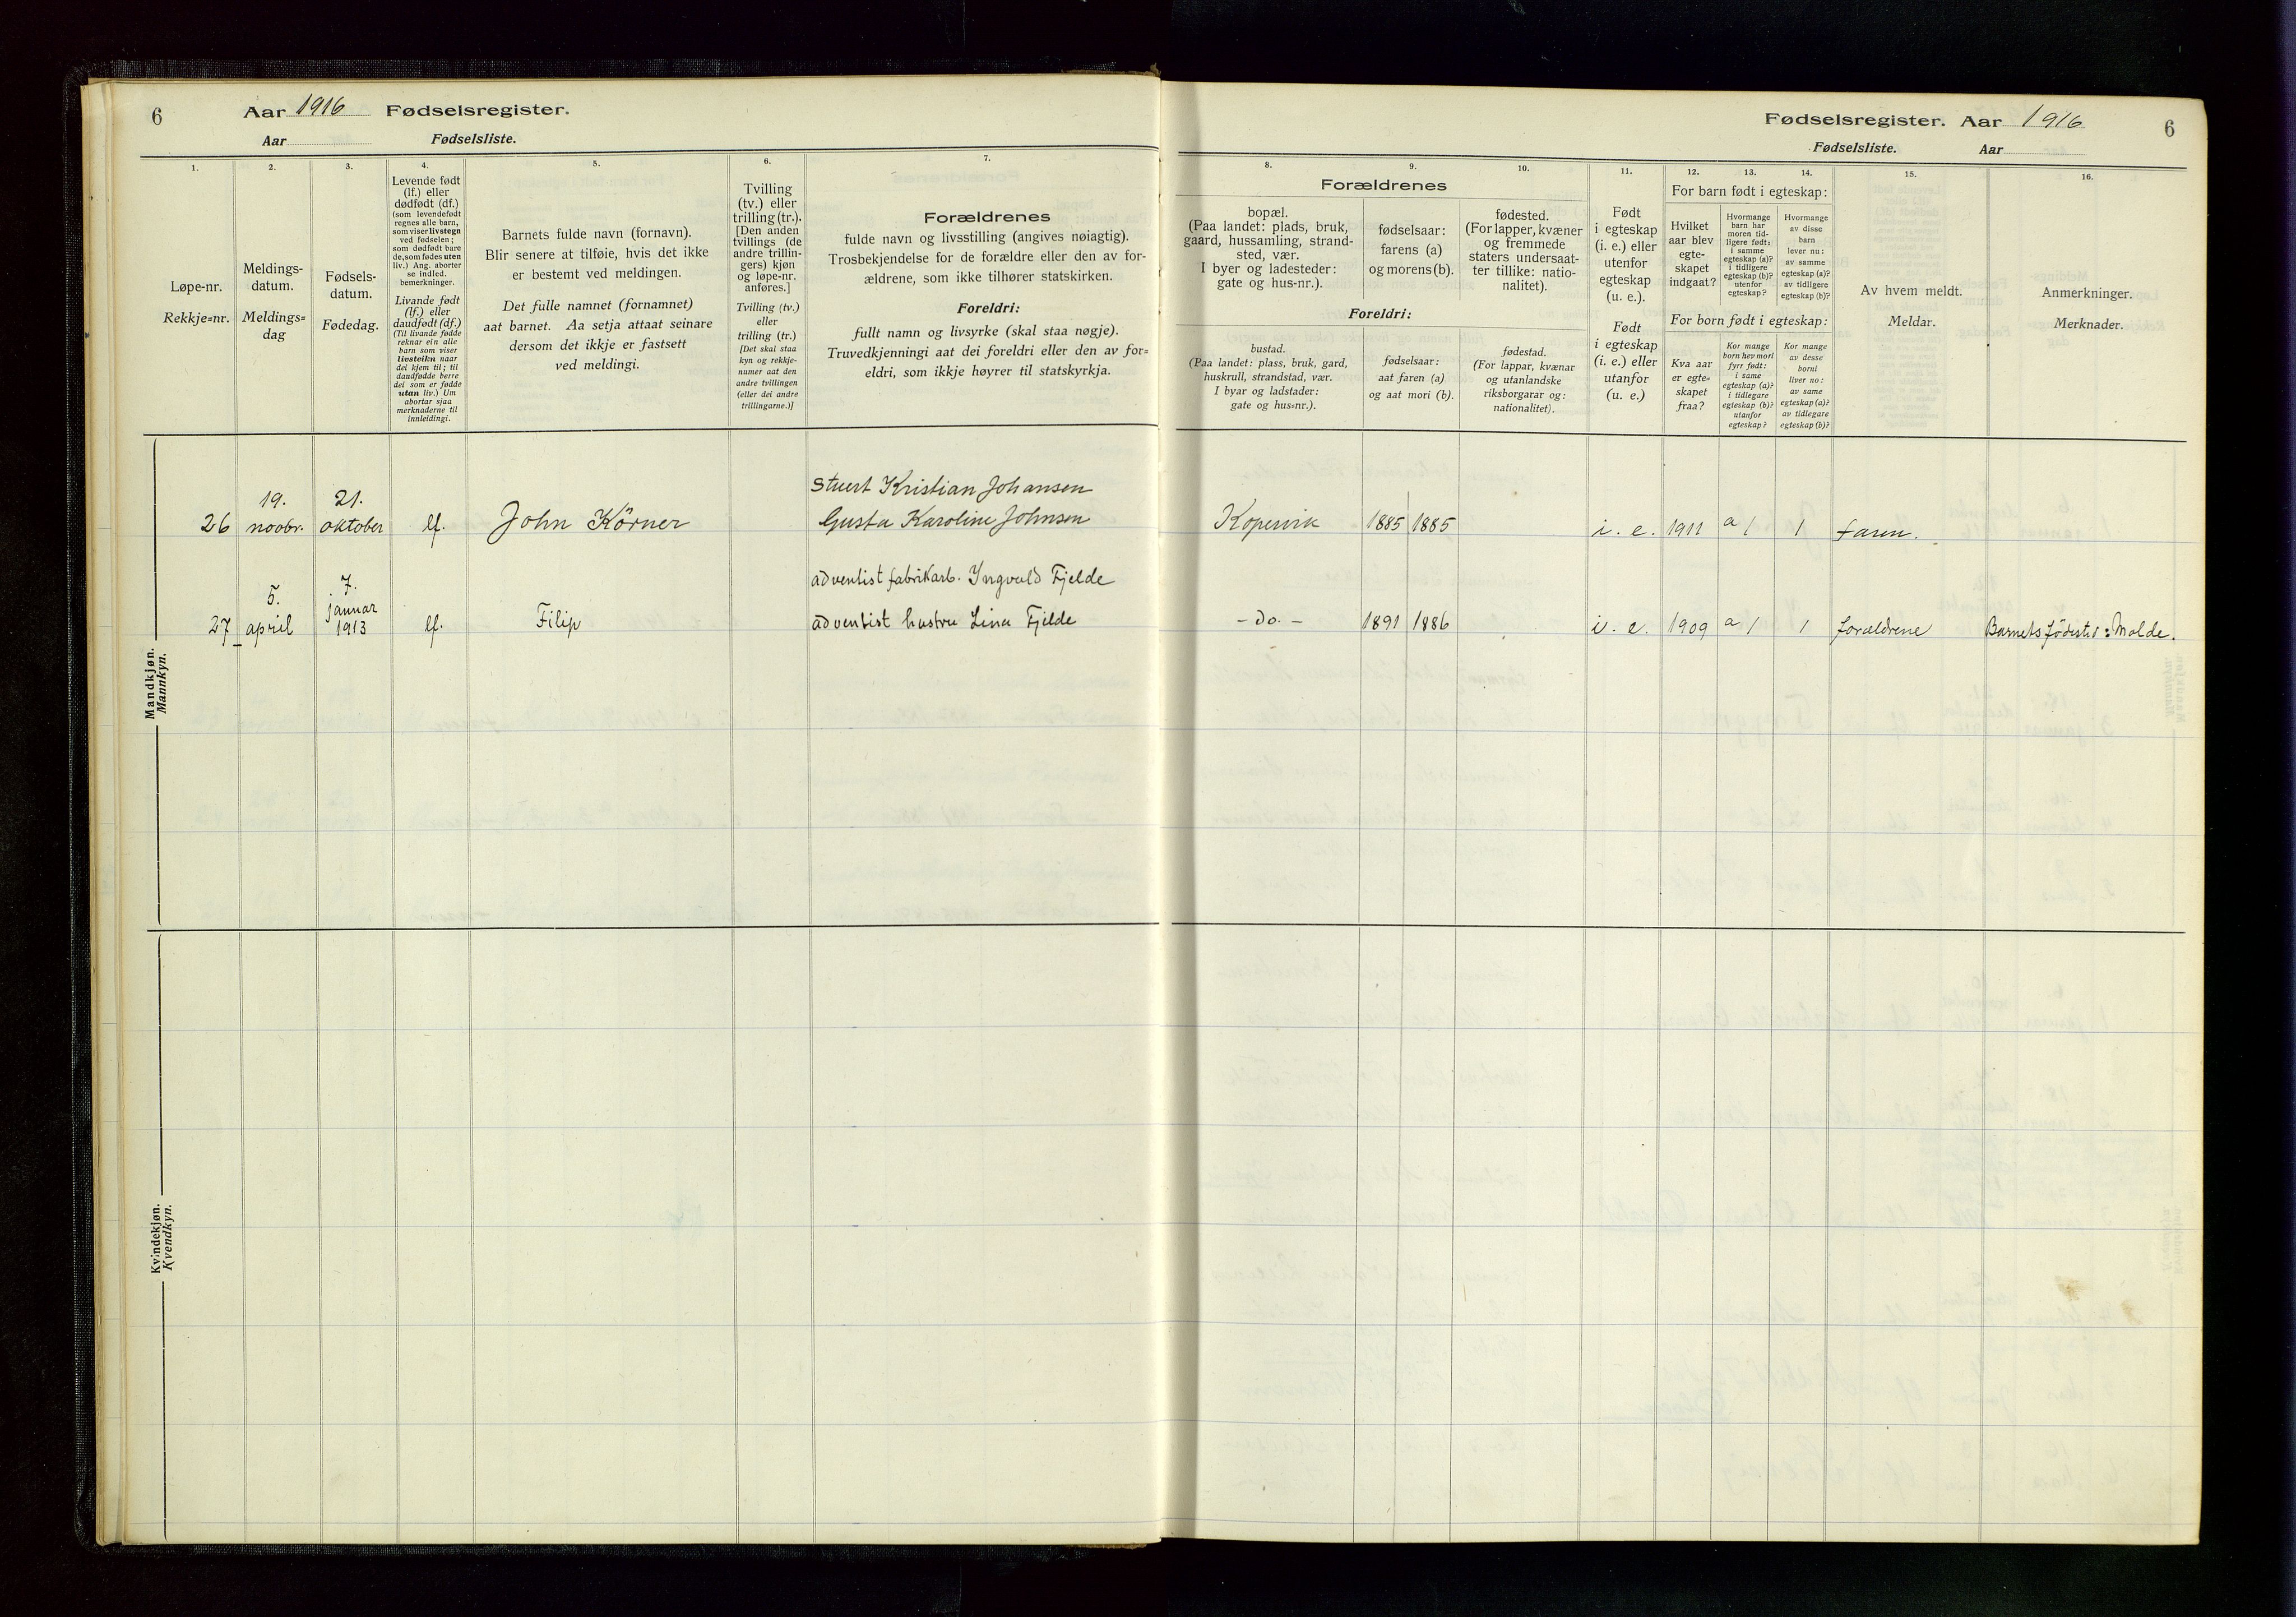 6
Aar 1916 Fødselsregister.
Aar Fødselsliste.
1.
2.
3.
4.
5.
6.
7.
Løpe-nr.
Rekkje=nr.
Meldings-
datum.
Meldings=
dag
Fødsels-
datum.
Fødedag.
Levende født
(lf.) eller
dødfødt (df.)
(som levendefødt
regnes alle barn,
som viser livstegn
ved fødselen;
som dødfødt bare
de, som fødes uten
liv.) Ang. aborter
se indled.
bemerkninger.
Livande født
(lf.) eller
daudfødt (df.)
(Til livande fødde
reknar ein alle
barn som viser
livsteikn naar
dei kjem til; til
daudfødde berre
dei som er fødde
utan liv.) Um
abortar sjaa
merknaderne til
innleidingi.
Barnets fulde navn (fornavn).
Blir senere at tilføie, hvis det ikke
er bestemt ved meldingen.
Det fulle namnet (fornamnet)
aat barnet. Aa setja attaat seinare
dersom det ikkje er fastsett
ved meldingi.
Tvilling
(tv.) eller
trilling (tr.).
[Den anden
tvillings (de
andre trillin-
gers) kjøn
og løpe-nr.
anføres.]
Tvilling (tv.)
eller
trilling (tr.)
[Det skal staa
kyn og rekkje-
numer aat den
andre tvillingen
(eller dei andre
trillingarne.)]
Forældrenes
fulde navn og livsstilling (angives nøiagtig).
Trosbekjendelse for de forældre eller den av for-
ældrene, som ikke tilhører statskirken.
Foreldri:
fullt namn og livsyrke (skal staa nøgje).
Truvedkjenningi aat dei foreldri eller den av for=
eldri, som ikkje høyrer til statskyrkja.
Mandkjøn.
Mannkyn.
26
19.
novbr.
21.
oktober
lf.
John Körner
Stuert Kristian Johansen
Gusta Karoline Johnsen
27
5.
april
7.
januar
1913
lf.
Filip
adventist fabrikarb. Yngvald Fjelde
adventist hustru Lina Fjelde
Kvindekjøn.
Kvendkyn.
Fødselsregister. Aar 1916
6
Fødselsliste. Aar
8.
9.
10.
11.
12.
13.
14.
15.
16.
Forældrenes
bopæl.
(Paa landet: plads, bruk,
gaard, hussamling, strand-
sted, vær.
I byer og ladesteder:
gate og hus-nr.).
fødselsaar:
farens (a)
og morens (b).
fødested.
(For lapper, kvæner
og fremmede
staters undersaat-
ter tillike: natio-
nalitet).
Foreldri:
bustad.
(Paa landet: plass, bruk, gard,
huskrull, strandstad, vær.
I byar og ladstader:
gate og hus=nr.).
fødselsaar:
aat faren (a)
og aat mori (b).
fødestad.
(For lappar, kvænar
og utanlandske
riksborgarar og:
nationalitet).
Født
i egteskap
(i. e.) eller
utenfor
egteskap
(u. e.).
Født
i egteskap
(i. e.) eller
utanfor
(u. e.)
For barn født i egteskap:
Hvilket
aar blev
egte-
skapet
indgaat?
Hvormange
barn har
moren tid-
ligere født:
i samme
egteskap (a)?
i tidligere
egteskap (b)?
utenfor
egteskap?
Hvormange
av disse
barn
lever nu:
av samme
egteskap (a)?
av tidligere
egteskap (b)?
For born født i egteskap:
Kva aar
er egte=
skapet
fraa?
Kor mange
born hev mori
fyrr født:
i same
egteskap (a)?
i tidlegare
egteskap (b)?
utanfor
egteskap?
Kor mange
av desse
borni
liver no:
av same
egteskap (a)?
av tidlegare
egteskap (b)?
Av hvem meldt.
Meldar.
Anmerkninger.
Merknader.
Kopervik
1885 1885
i. e. 1911 a 1 1 faren.
- do. -
1891 1886
i. e. 1909 a 1 1 forældrene
Barnets födested: Molde.